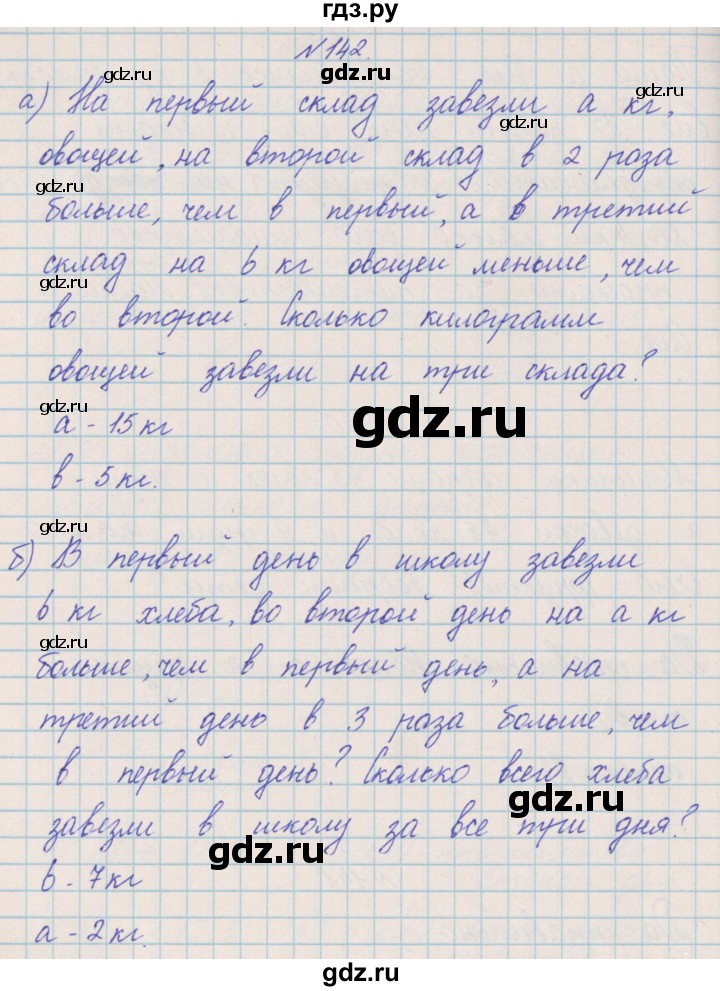 гдз.ру
№142.
gdz.ru
gdz.ru
а) На первый склад завезли а кг.
gdz.ru
овощей, на второй склад в 2 раза
gdz.ru
больше, чем в первый, а в третий
склад на b кг овощей меньше, чем
gdz.ru
во второй. Сколько килограмм
овощей завезли на три склада?
gdz.ru
gdz.ru
а - 15 кг
в - 5 кг.
gdz.ru
б) В первый день в школу завезли
b кг хлеба, во второй день на а кг
gdz.ru
больше, чем в первый день, а на
третий день в 3 раза больше, чем
в первый день? Сколько всего хлеба
gdz.ru
завезли в школу за все три дня?
gdz.ru
b - 7 кг
а - 2 кг.
gdz.ru